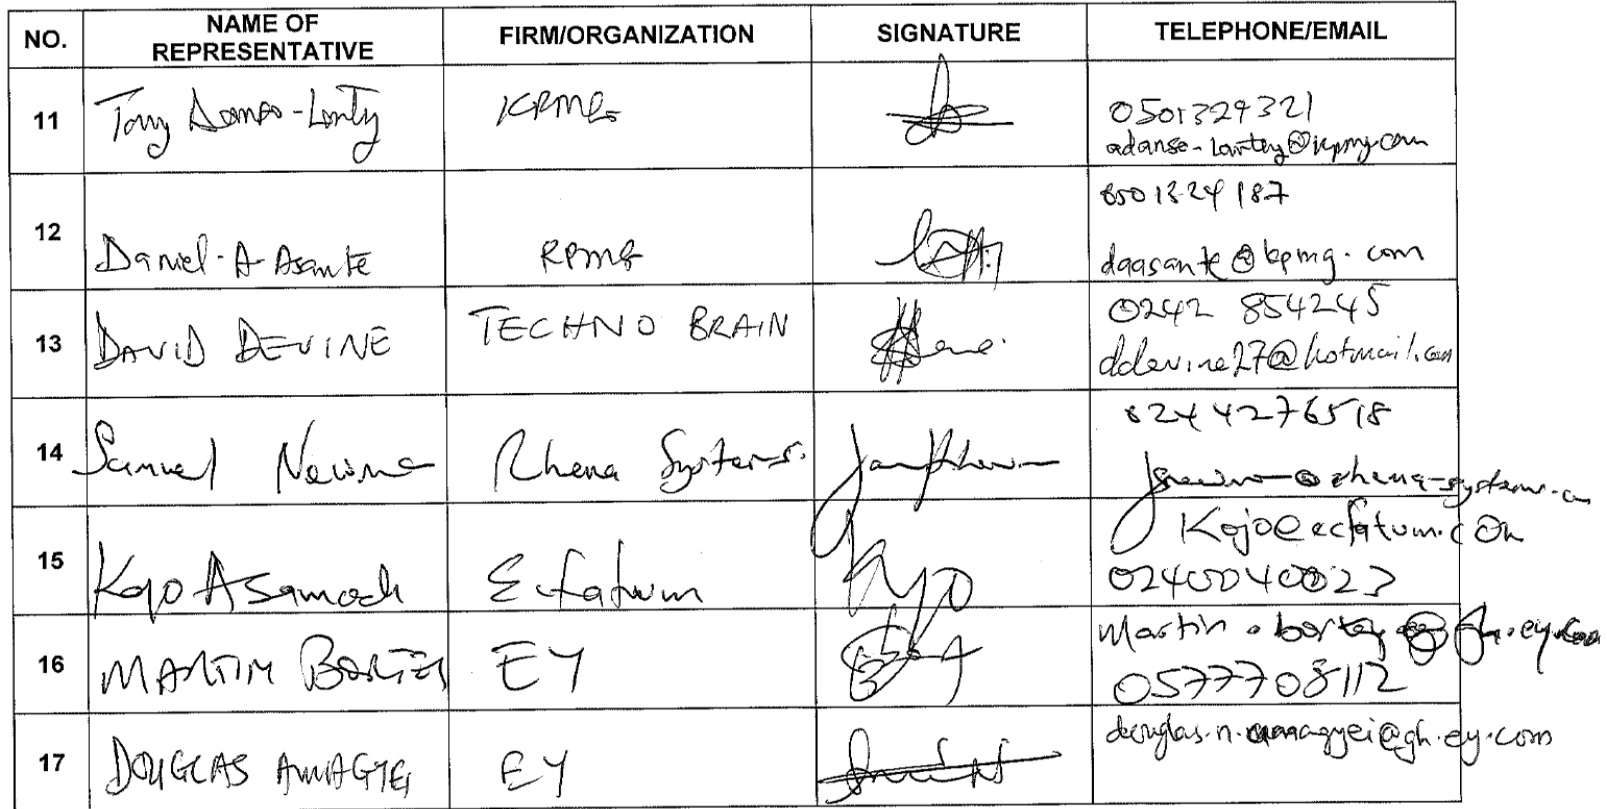 NO. NAME OF REPRESENTATIVE FIRM/ORGANIZATION SIGNATURE TELEPHONE/EMAIL
11 Tony KPMG 0501329321
adanse-lartey@kpmg.com
12 Daniel-A-Asante KPMG 0501324187
daasante@kpmg.com
13 DAVID DEVINE TECHNO BRAIN 0242 854245
ddevine27@hotmail.com
14 Samuel Rhema Systems. 0244276518
15 Kojo Asamoah Ecfatum Kojo Kojo@ecfatum.com
0240040023
16 MARTIN BORTEY EY martin.bortey@gh.ey.com
0577708112
17 DOUGLAS AMAGYEI EY douglas.n.amagyei@gh.ey.com